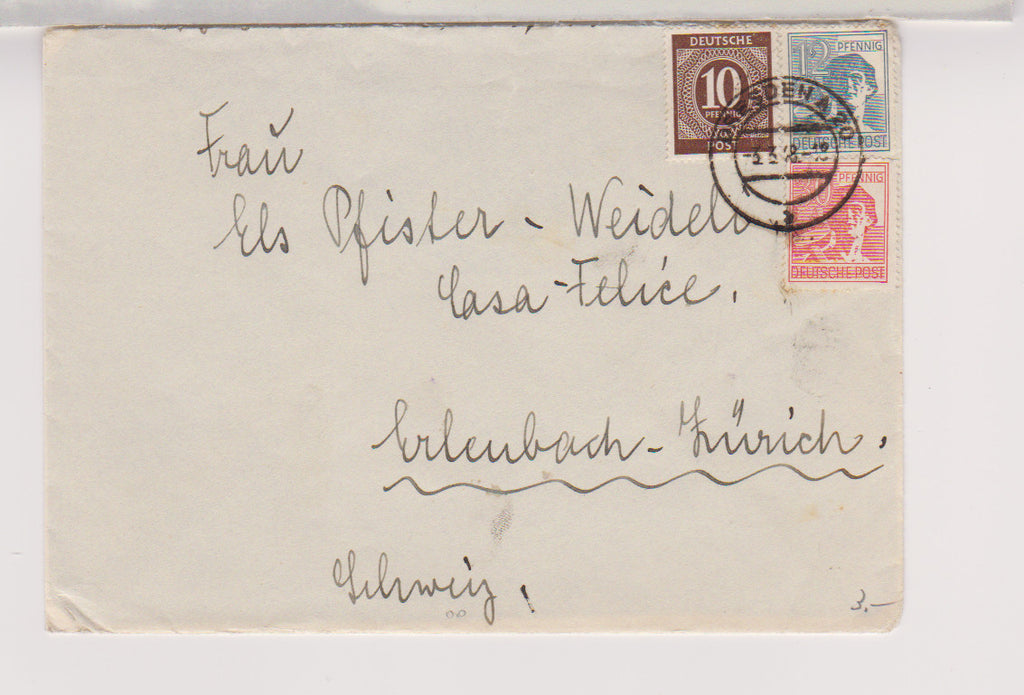 DEUTSCHE
10
PFENNIG
POST
12 PFENNIG
DEUTSCHE POST
DRESDEN A 20
-3.3.48.-18
a
PFENNIG
DEUTSCHE POST
Frau
Els Pfister - Weideli
Casa-Felice.
Erlenbach-Zürich.
Schweiz.
3.-